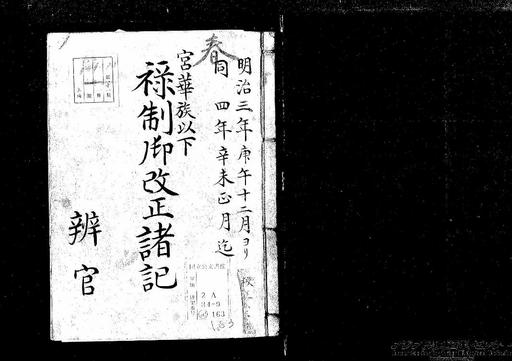 春
明治三年庚午十二月ヨリ
同四年辛未正月迄
宮華族以下
祿制御改正諸記
辨官
2 A
34-9
163